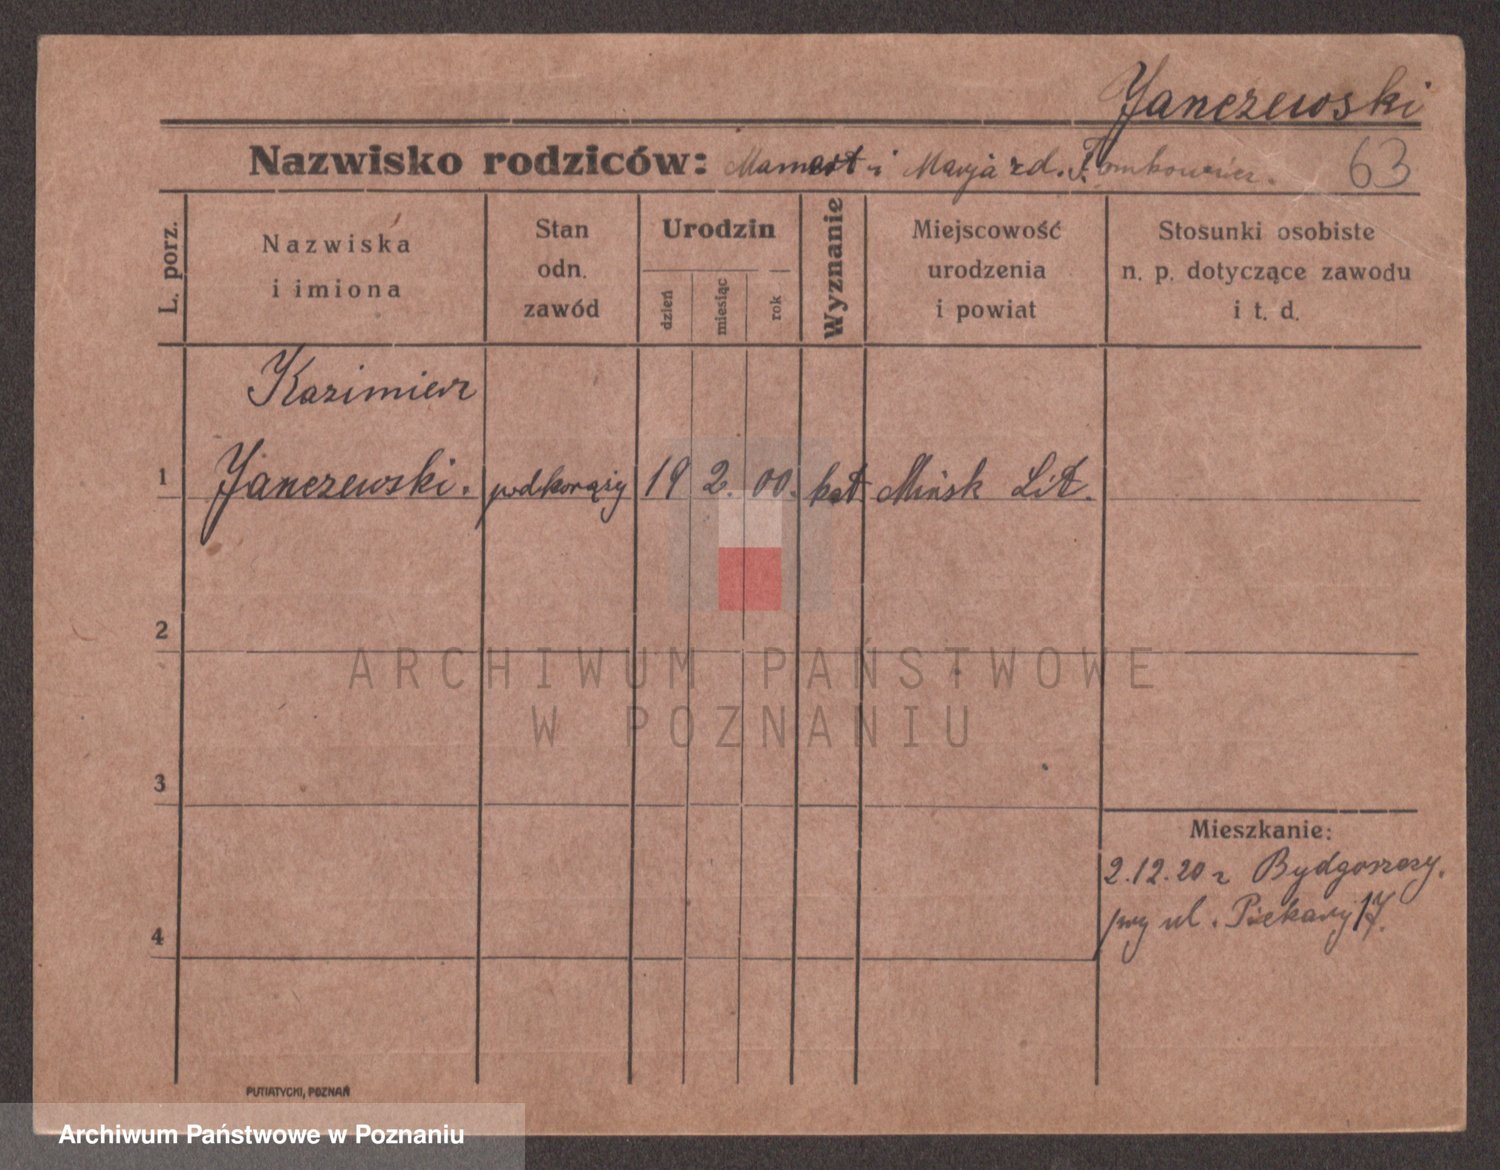 Janczewski
Nazwisko rodziców: Mamert i Marja z d. Tomkowicz.
63
L. porz.
Nazwiska
i imiona
Stan
odn.
zawód
Urodzin
dzień
miesiąc
rok
Wyznanie
Miejscowość
urodzenia
i powiat
Stosunki osobiste
n. p. dotyczące zawodu
i t. d.
Kazimierz
1 Janczewski. podkorąży 19 2. 00. kat. Mińsk Lit.
2
ARCHIWUM PAŃSTWOWE
W POZNANIU
3
Mieszkanie:
2.12.20 z Bydgoszczy.
4
ul. Piekary 17.
PUTIATYCKI, POZNAŃ
Archiwum Państwowe w Poznaniu